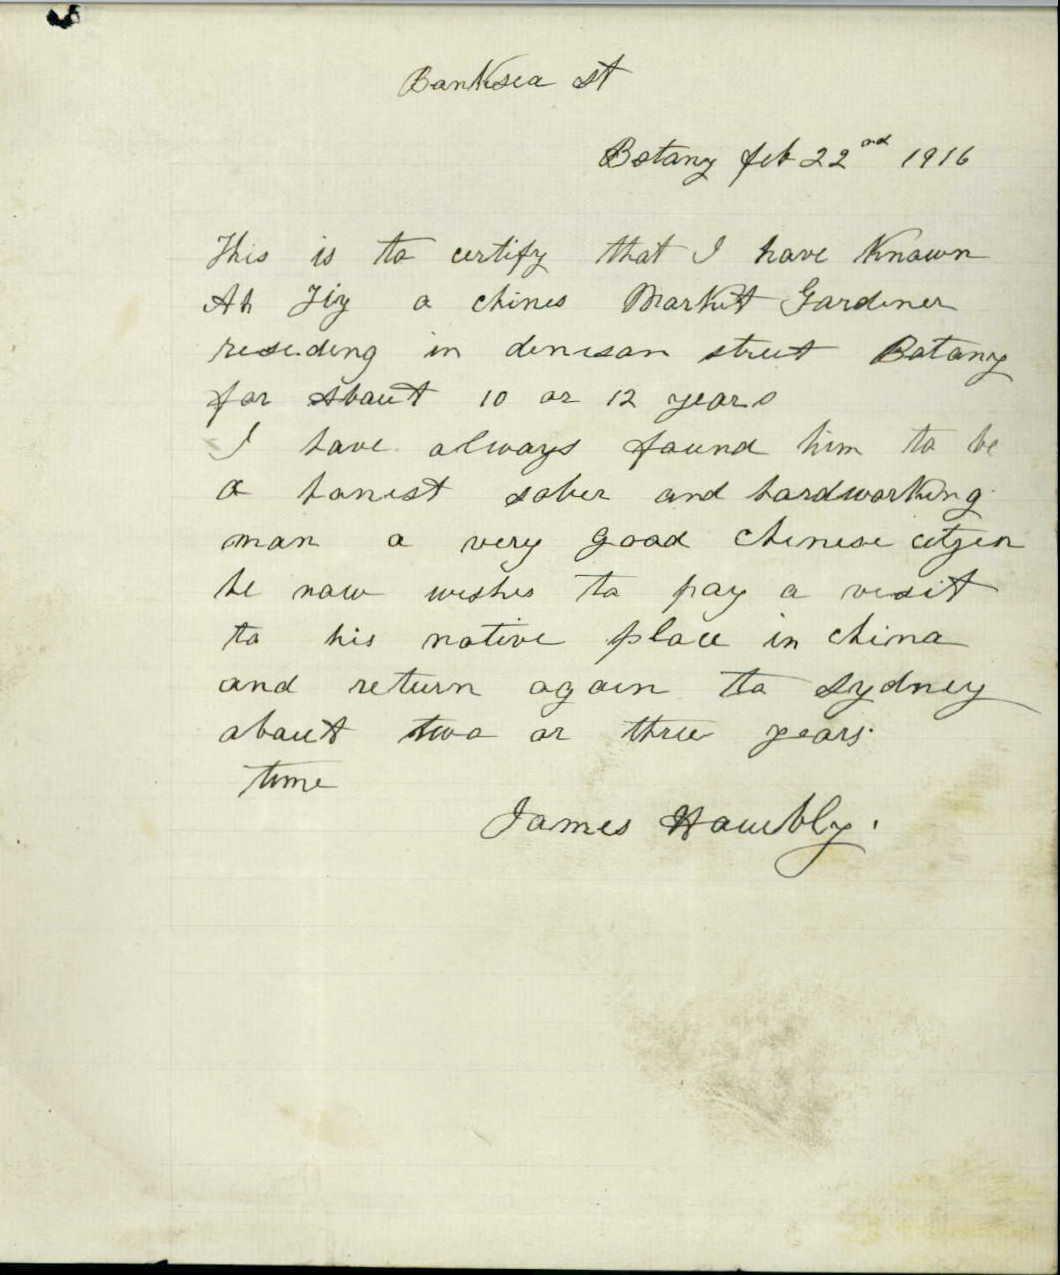 Banksea St
Botany feb 22nd 1916
This is to certify that I have Known
Ah Jiy a chines Market Gardener
reseding in denison street Botany
for about 10 or 12 years
I have always found him to be
a honest sober and hardworking
man a very good chinese citzen
he now wishes to pay a visit
to his native place in china
and return again to Sydney
about two or three years
time
James Hambly.